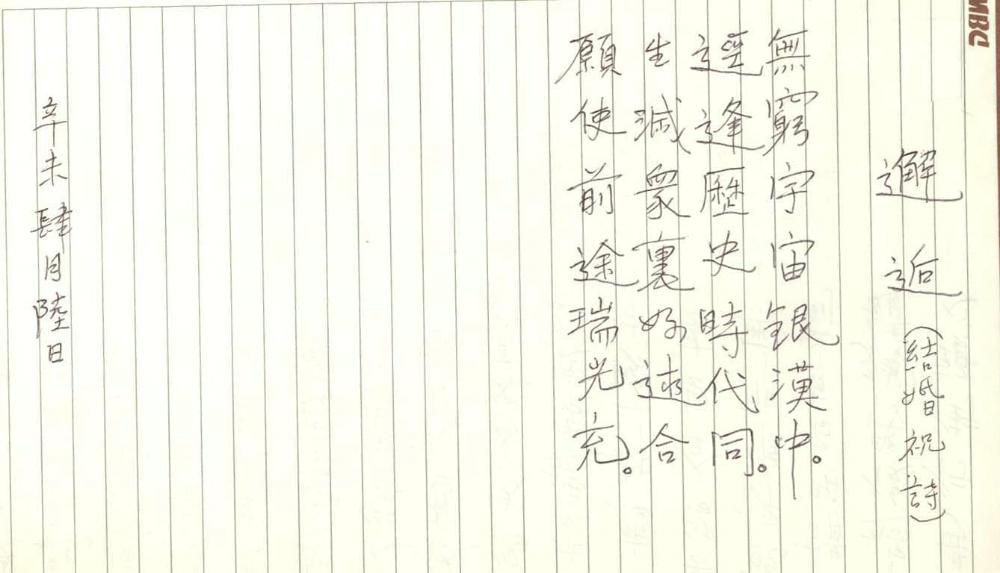 MBC
邂逅(結婚祝詩)
無窮宇宙銀漢中。
逕逢歷史時代同。
生滅衆裏好逑合
願使前途瑞光充。
辛未肆月陸日